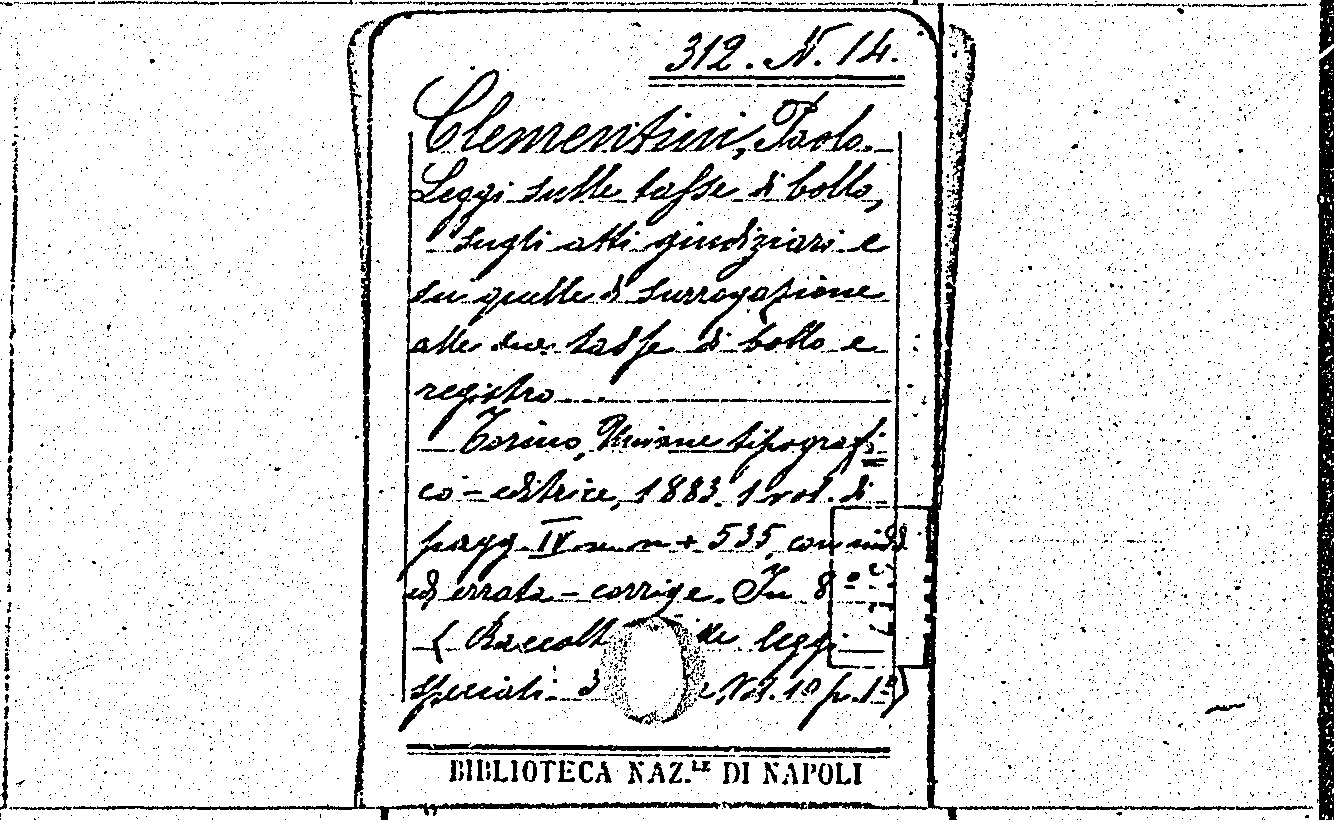 312. N. 14.
Clementini, Paolo.
Leggi sulle tasse di bollo,
sugli atti giudiziari e
su quelle di surrogazione
alle due tasse di bollo e
registro
Torino, Unione tipografi
co-editrice, 1883. 1 vol. di
pagg. IV + 535, con
ed errata-corrige. In 8º
( leggi
speciali Vol. 1º p. 1ª)
BIBLIOTECA NAZ.LE DI NAPOLI